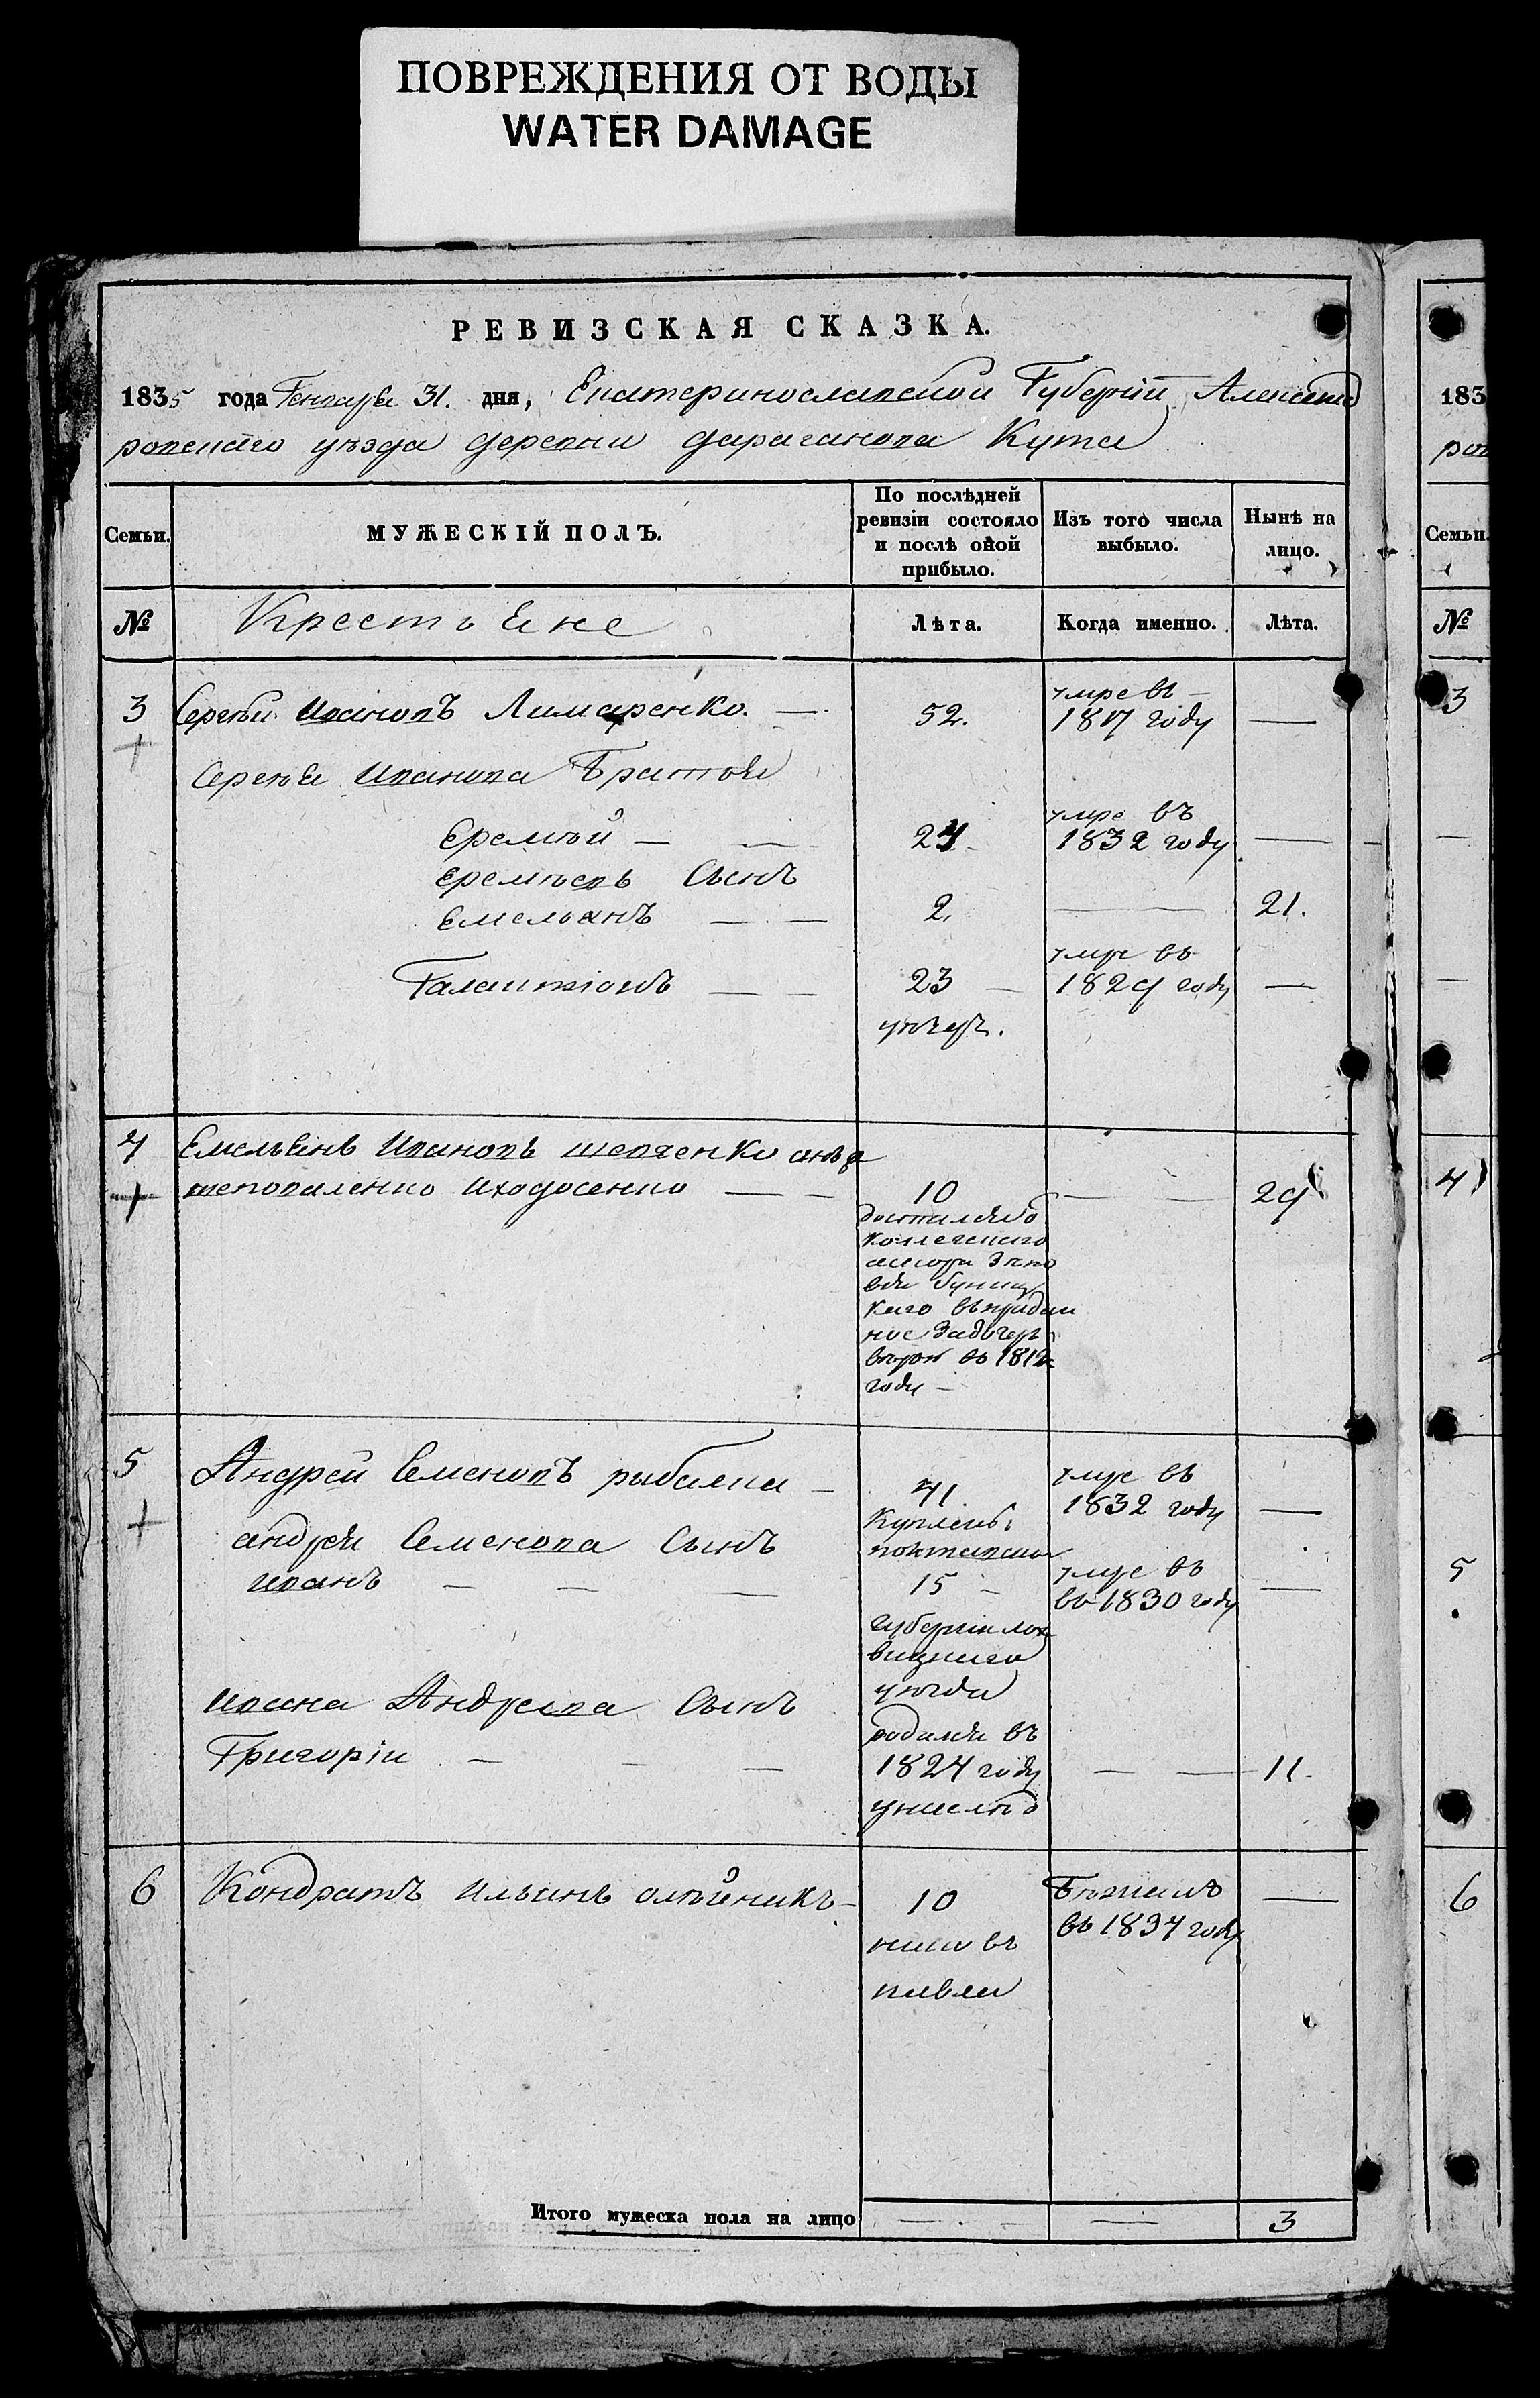 ПОВРЕЖДЕНИЯ ОТ ВОДЫ
WATER DAMAGE
РЕВИЗСКАЯ СКАЗКА.
1835 года Генваря 31. дня, Екатеринославской Губерніи Александ
ровскаго уѣзда деревни Дараганова Кута
Семьи.
МУЖЕСКІЙ ПОЛЪ.
По послѣдней
ревизіи состояло
и послѣ оной
прибыло.
Изъ того числа
выбыло.
Нынѣ на
лицо.
№
Крестьяне
Лѣта.
Когда именно.
Лѣта.
3 Сергѣй Ивановъ Лимаренко. — 52. умре въ
1817 году —
Сергѣя Иванова Братья
Еремѣй — 24 умре въ
1832 году —
Еремѣевъ Сынъ
Емельянъ — 2. — 21.
Галактіонъ — 23 умре въ
1829 году —
4 Емельянъ Ивановъ
— 10 — 29
достался
колежскаго
въ 1812
году —
5 Андрей Семеновъ рыбалка — 41 умре въ
1832 году —
Купленъ
Андрея Семенова Сынъ
Иванъ — 15 — умре въ
въ 1830 году —
Губерніи Лох
вицкаго
уѣзда
Ивана Андреева Сынъ
Григорій — родился въ
1824 году — 11.
6 Кондратъ Ильинъ олѣйникъ — 10 Бѣжалъ
въ 1834 году —
Итого мужеска пола на лицо — — 3
183
Семьи.
№
3
4
5
6